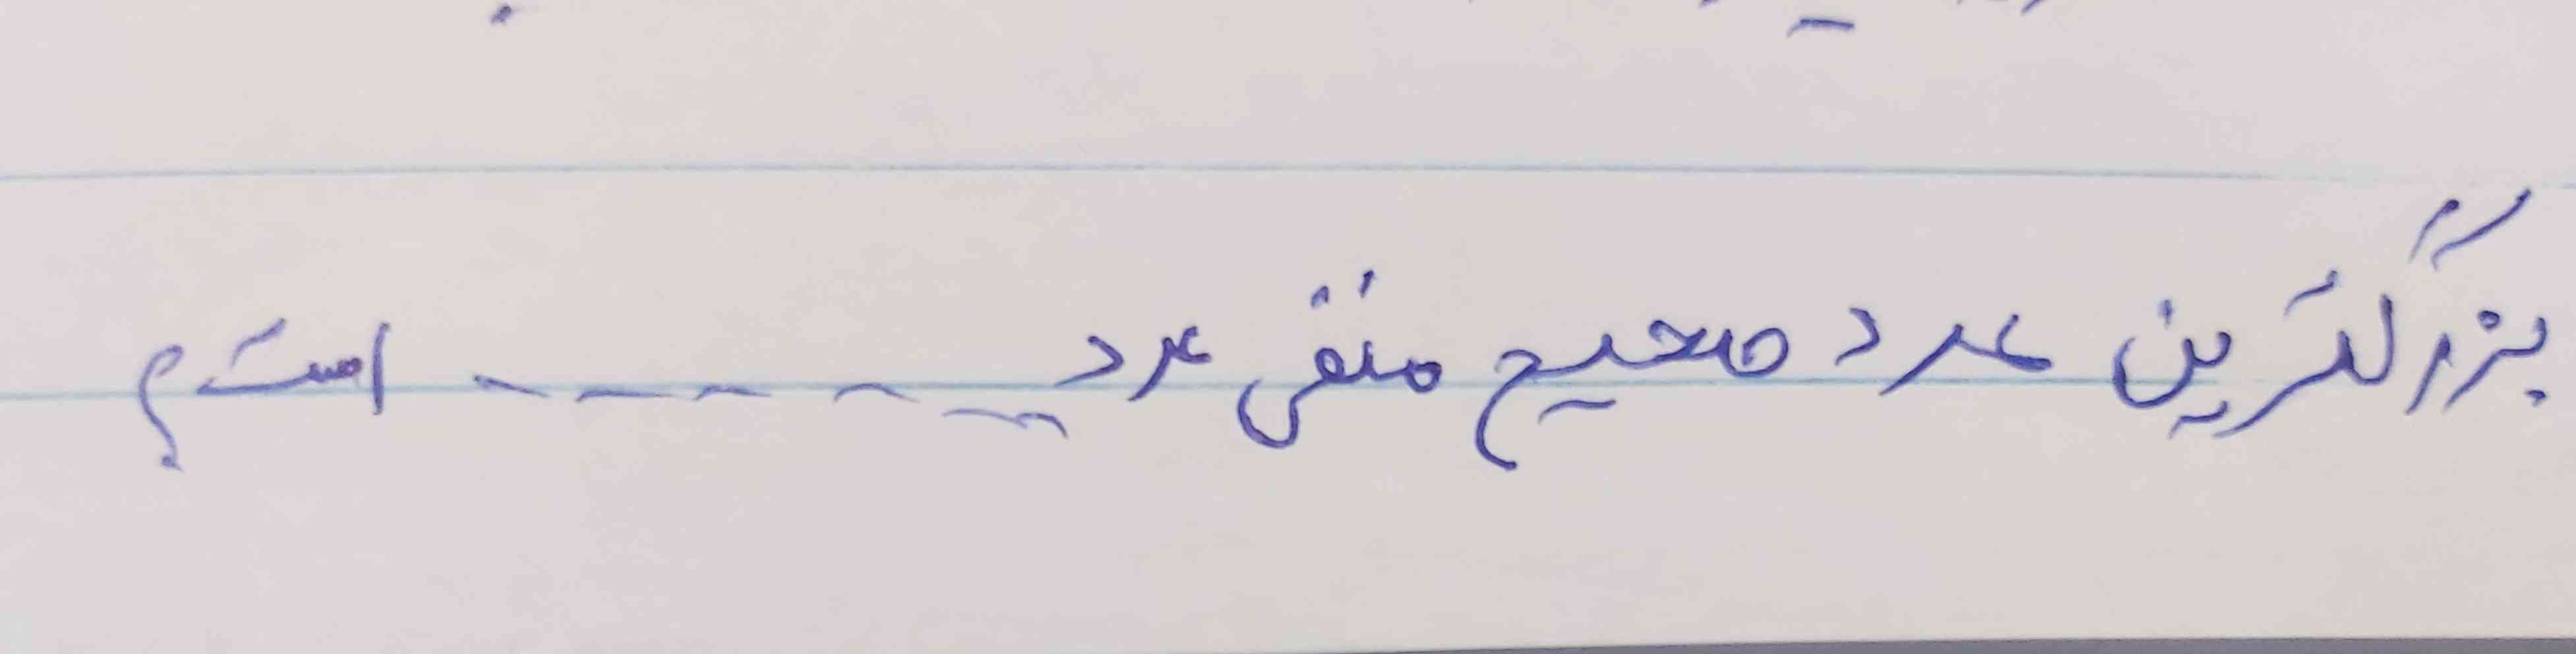 بزرگترین عدد صحیح منفی عدد ------ است؟